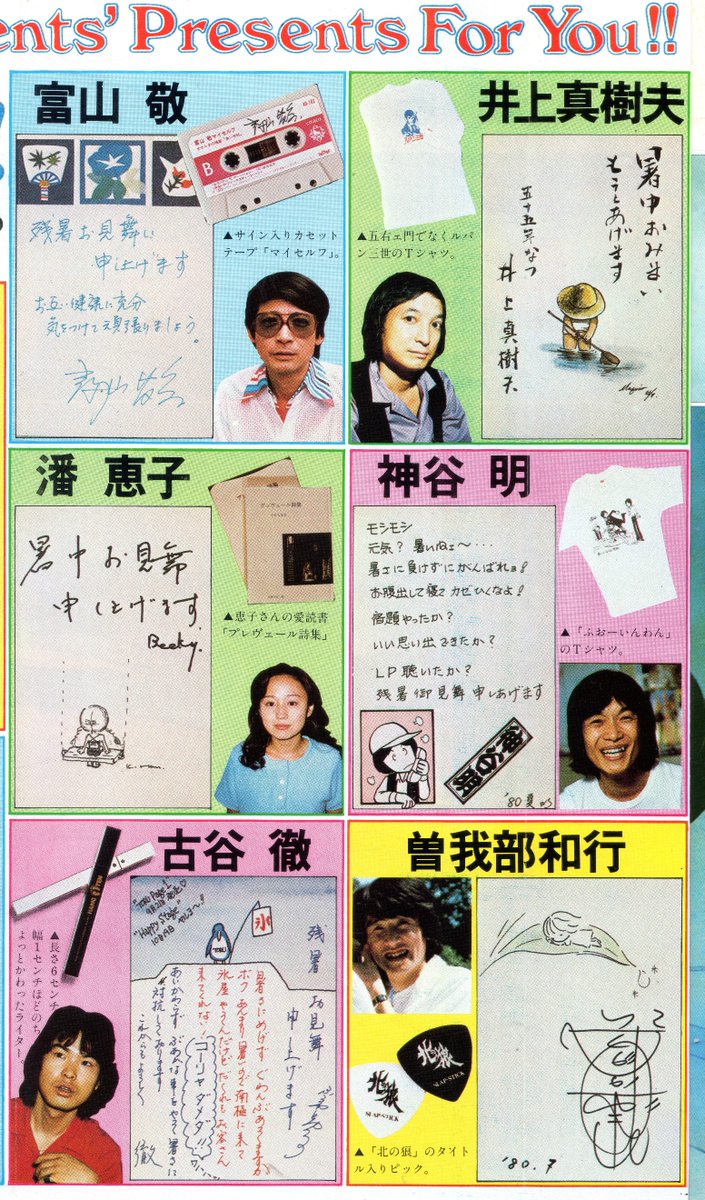 ents' Presents For You!!
富山 敬
B
残暑お見舞い
申し上げます
お互い健康に充分
気をつけて頑張りましょう。
▲サイン入りカセット
テープ「マイセルフ」。
井上真樹夫
▲五右ェ門でなくルパ
ン三世のTシャツ。
暑中おみまい
もうしあげます
五十五年なつ
井上真樹夫
潘 恵子
暑中お見舞
申し上げます
Beeky.
▲恵子さんの愛読書
「プレヴェール詩集」
神谷 明
モシモシ
元気? 暑いねェ〜・・・
暑さに負けずにがんばれョ!
お腹出して寝てカゼひくなよ!
宿題やったか?
いい思い出できたか?
LP聴いたか?
残暑御見舞申しあげます
神谷明
'80夏
▲「ふおーいんわん」
のTシャツ。
古谷 徹
▲長さ6センチ
幅1センチほどのち
ょっとかわったライター。
"Happy Stage"
氷
TORU
残暑お見舞
申し上げます
暑さにめげず
ボクあんまり暑いので南極に来て
氷屋やってんだけどだれもお客さん
来てくれない!
コーリャダメダ!!
徹
曽我部和行
北の狼
SLAP-STICK
北の狼
SLAP-STICK
▲「北の狼」のタイト
ル入りピック。
'80.7